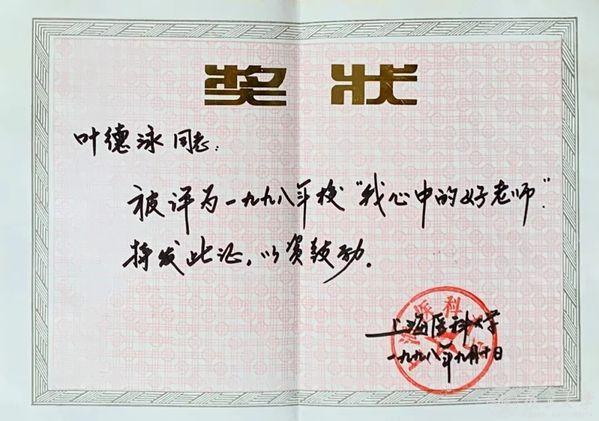 奖状
叶德泳同志：
被评为一九九八年校“我心中的好老师”.
特发此证，以资鼓励。
上海医科大学
一九九八年九月十日